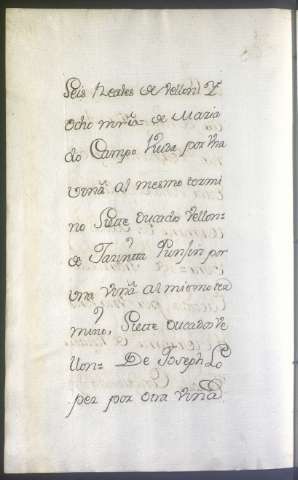 Seis Reales de Vellon; Y
ocho mrs̃= de Maria
do Campo Viuda por Una
viñã al mesmo termi
no Siete ducados Vellon=
de por
una viñã al mismo ter
mino, Siete ducados Ve
llon= De Joseph Lo
pez por otra viñã